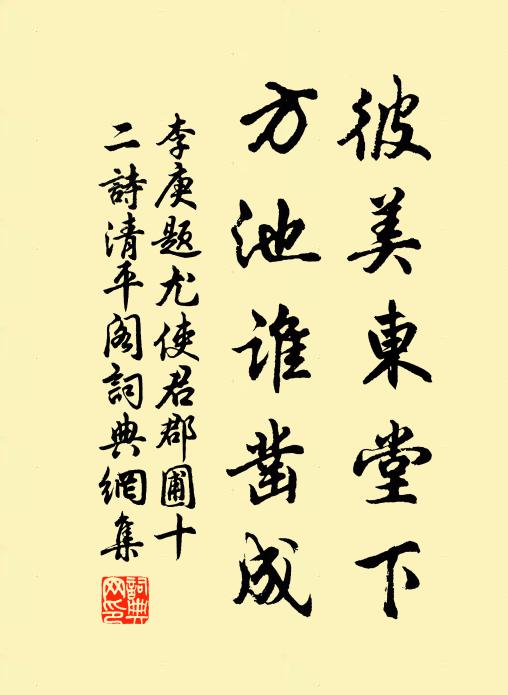 彼美東堂下
方池誰凿成
李庚題尤使君郡圃十
二詩清平阁詞典網集
詞典
网印